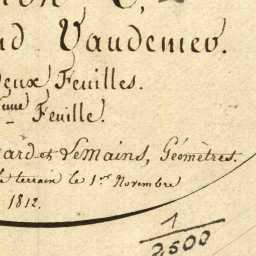 on C,
nd Vaudemer.
Deux Feuilles.
eme Feuille.
ard et LeMains, Géomètres.
le terrain le 1er Novembre
1812.
1
2500